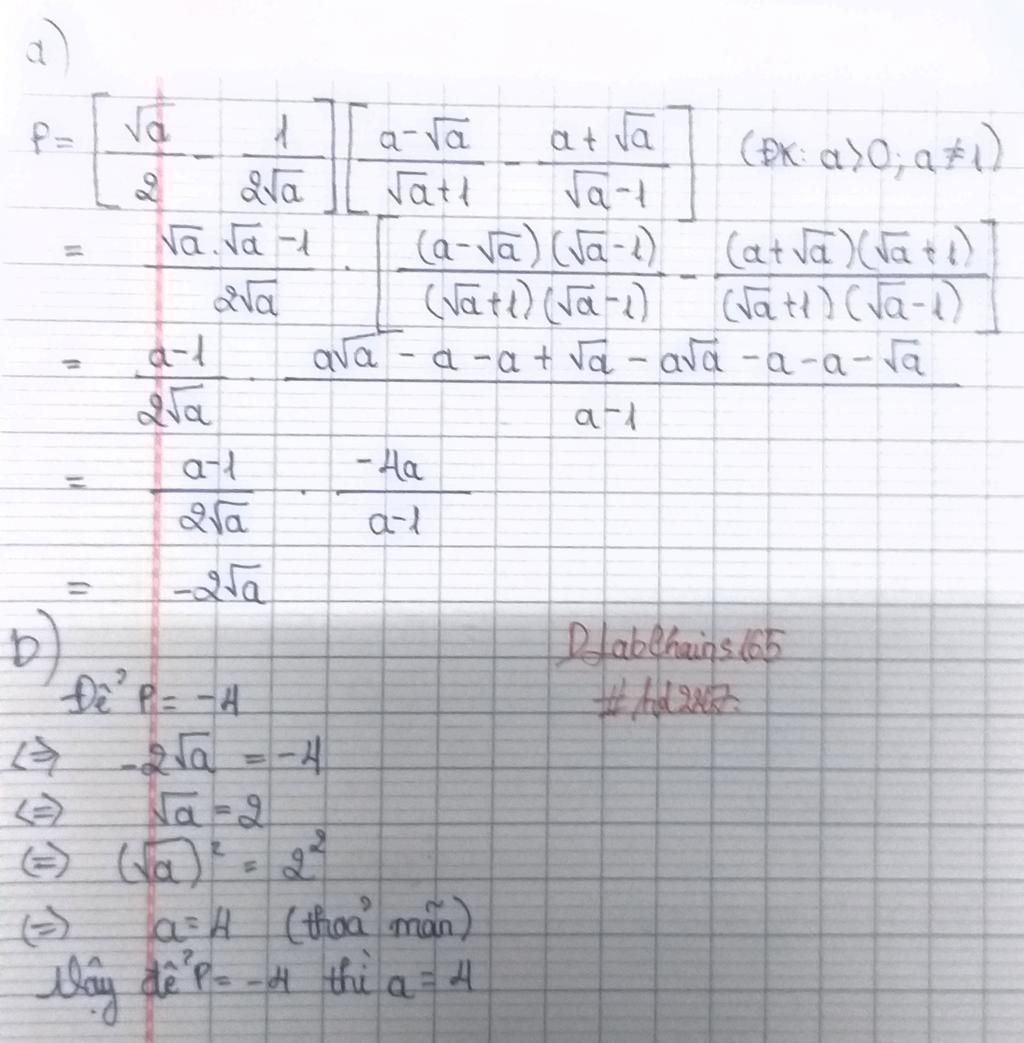 a)
P = [√a/2 - 1/2√a] [a-√a/√a+1 - a+√a/√a-1] (ĐK: a>0; a≠1)
= √a.√a-1/2√a . [(a-√a)(√a-1)/(√a+1)(√a-1) - (a+√a)(√a+1)/(√a+1)(√a-1)]
= a-1/2√a . a√a - a - a + √a - a√a - a - a - √a/a-1
= a-1/2√a . -4a/a-1
= -2√a
b)
Để P = -4
<=> -2√a = -4
<=> √a = 2
<=> (√a)² = 2²
<=> a = 4 (thoả mãn)
Vậy để P = -4 thì a = 4